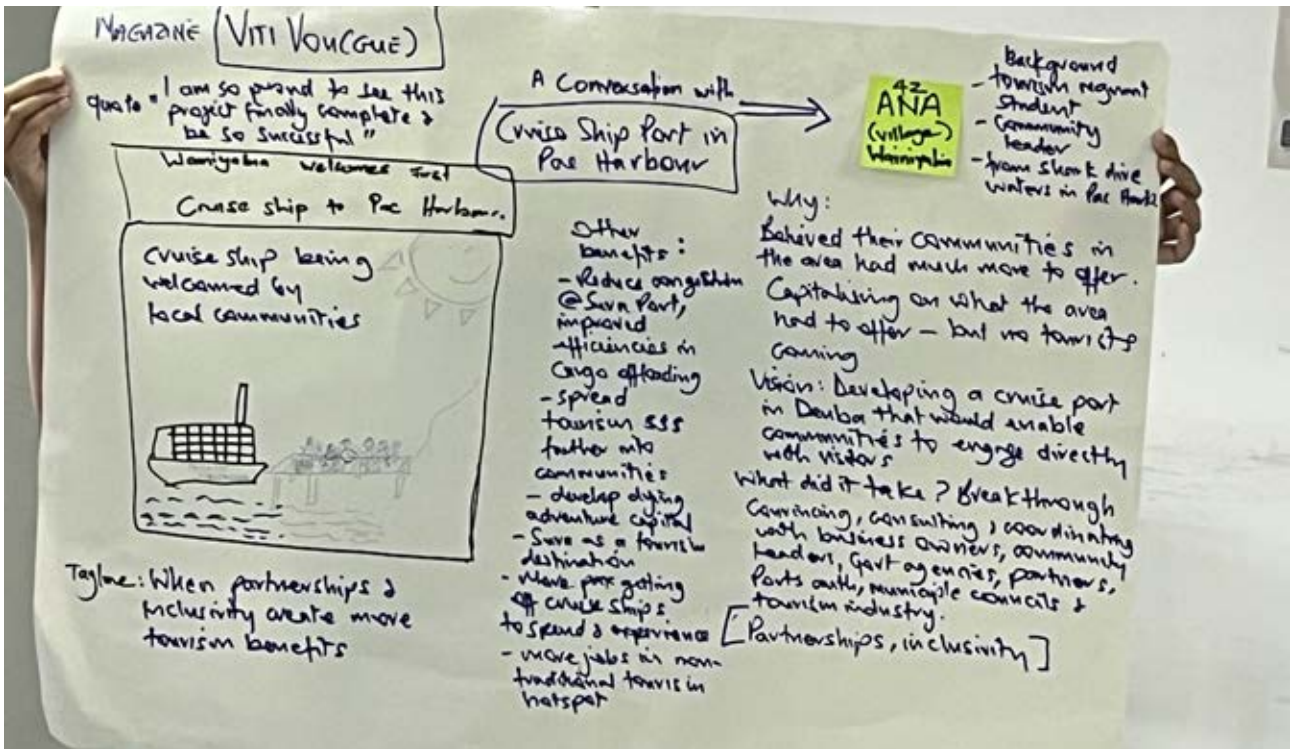 MAGAZINE (VITI VOU(GUE)
quote "I am so proud to see this
project finally complete &
be so sucessful"
welcomes first
Cruise ship to Pac Harbour.
cruise ship being
welcomed by
local communities
Tagline: When partnerships &
inclusivity create more
tourism benefits
A Conversation with
Cruise Ship Port in
Pac Harbour
42
ANA
(village)
Wainiyabia
Background
- tourism mgmnt
student
- Community
leader
- from shark dive
waters in Pac Harb
Other
benefits:
- Reduce congestion
@ Suva Port,
improved
efficiencies in
Cargo offloading
- spread
tourism $$$
further into
communities
- develop dying
adventure capital
- Suva as a tourism
destination
- More pax getting
off cruise ships
to spend & experience
- more jobs in non-
traditional tourism
hotspot
Why:
Believed their communities in
the area had much more to offer.
Capitalising on what the area
had to offer – but no tourists
coming
Vision: Developing a cruise port
in Deuba that would enable
communities to engage directly
with visitors
What did it take? Breakthrough
Convincing, consulting, coordinating
with business owners, community
leaders, Govt agencies, partners,
Ports auth, municiple councils &
tourism industry.
[Partnerships, inclusivity]